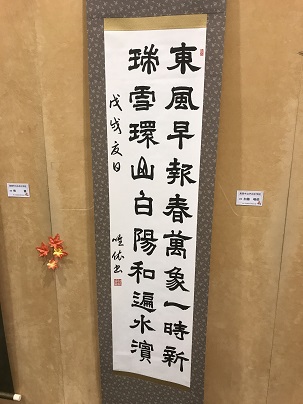 東風早報春萬象一時新
瑞雪環山白陽和遍水濱
戊戌夏日
書